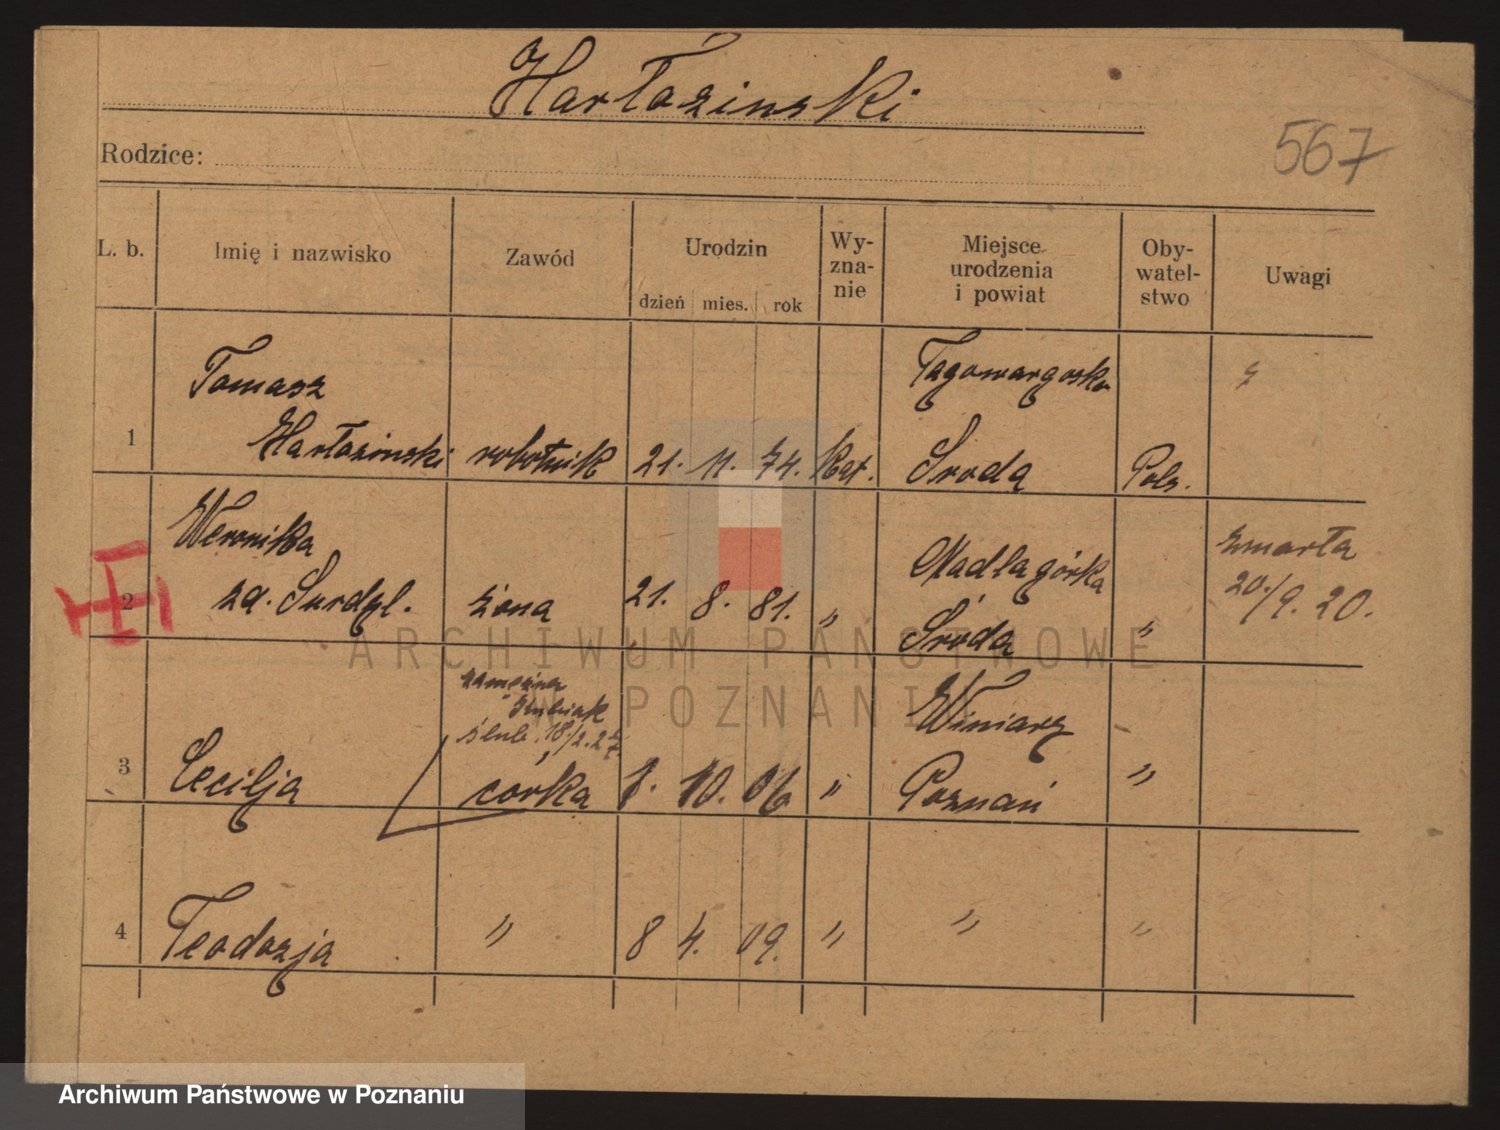 Hartozinski
567
Rodzice:
L. b. Imię i nazwisko Zawód Urodzin dzień mies. rok Wy-zna-nie Miejsce urodzenia i powiat Oby-watel-stwo Uwagi
Tomasz
1 Hartozinski robotnik 21. 11. 74. Kat. Środa Pols.
Weronika zmarła
2 żona 21. 8. 81. „ Środa „ 20./9. 20.
zamężna
ślub. 18./2. 27.
Winiary
3 Cecilja córka 1. 10. 06 „ Poznań „
4 Teodozja „ 8 4. 09. „ „ „
ARCHIWUM PAŃSTWOWE
W POZNANIU
Archiwum Państwowe w Poznaniu